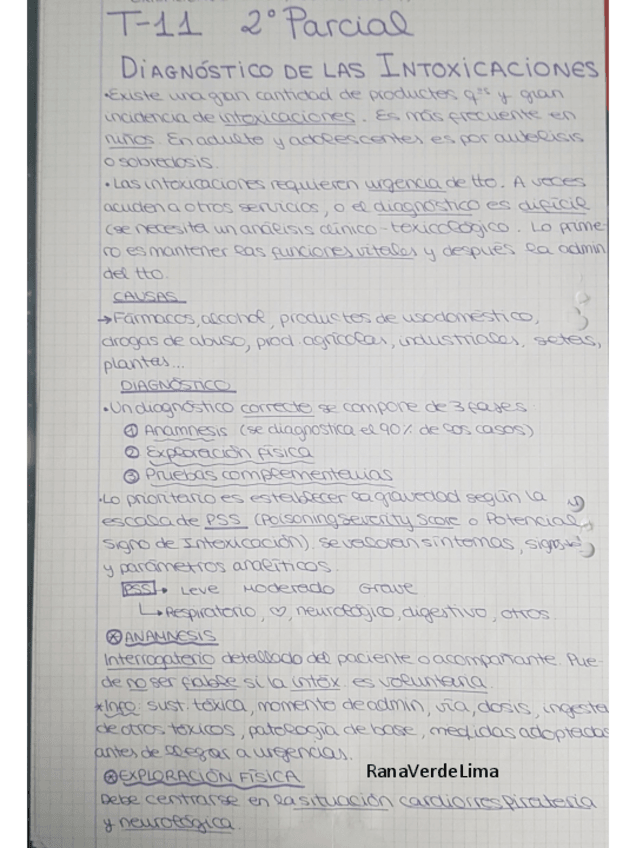 T-11 2º Parcial
DIAGNÓSTICO DE LAS INTOXICACIONES
·Existe una gran cantidad de productos qcos y gran
incidencia de intoxicaciones. Es más frecuente en
niños. En adulto y adolescentes es por autolisis
o sobredosis.
·Las intoxicaciones requieren urgencia de tto. A veces
acuden a otros servicios, o el diagnóstico es difícil
(se necesita un análisis clínico-toxicológico. Lo prime
ro es mantener las funciones vitales y después la admin
del tto.
CAUSAS
→Fármacos, alcohol, productos de uso doméstico,
drogas de abuso, prod. agrícolas, industriales, setas,
plantas...
DIAGNÓSTICO
·Un diagnóstico correcto se compone de 3 fases:
① Anamnesis (se diagnostica el 90% de los casos)
② Exploración física
③ Pruebas complementarias
·Lo prioritario es establecer la gravedad según la
escala de PSS (Poisoning Severity Score o Potencial
Signo de Intoxicación). Se valoran síntomas, signos
y parámetros analíticos.
PSS → Leve Moderado Grave
↳Respiratorio, ♡, neurológico, digestivo, otros
⊛ANAMNESIS
Interrogatorio detallado del paciente o acompañante. Pue-
de no ser fiable si la intox. es voluntaria.
*Info: sust. tóxica, momento de admin, vía, dosis, ingesta
de otros tóxicos, patología de base, medidas adoptadas
antes de llegar a urgencias.
⊛EXPLORACIÓN FÍSICA
Debe centrarse en la situación cardiorrespiratoria
y neurológica.
RanaVerdeLima